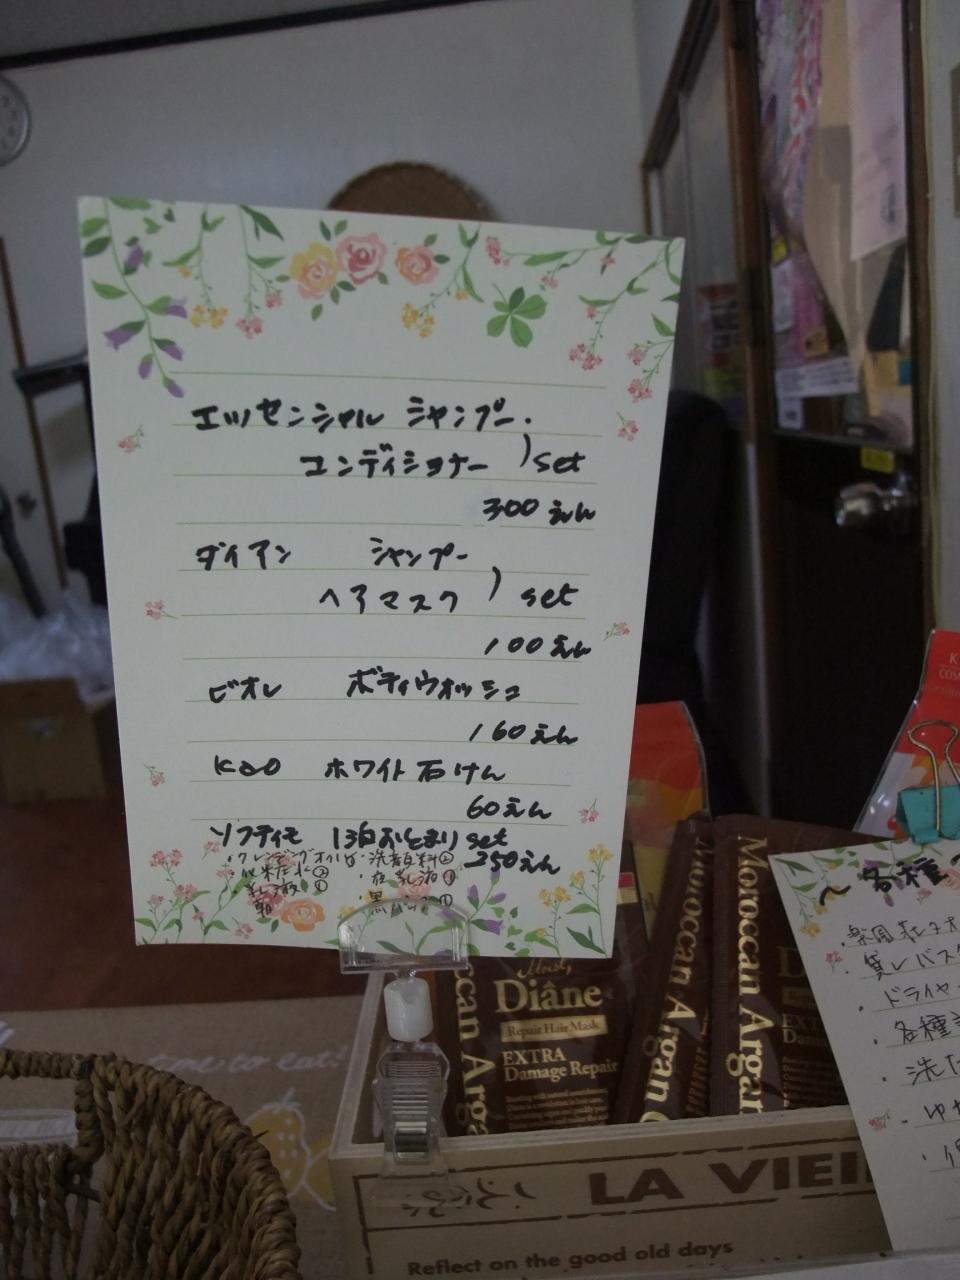 エッセンシャル シャンプー・
コンディショナー ) set
300えん
ダイアン シャンプー
ヘアマスク ) set
100えん
ビオレ ボディウォッシュ
160えん
Kao ホワイト石けん
60えん
ソフティモ 1泊おとまり set
・クレンジングオイル ・洗顔料②
350えん
・化粧水②
・乳液①
time to eat!
Moist
Diane
Repair Hair Mask
EXTRA
Damage Repair
Moroccan Argan
Moroccan Argan
LA VIEI
Reflect on the good old days
～各種～
・貸しバスタ
・ドライヤー
・各種
・洗